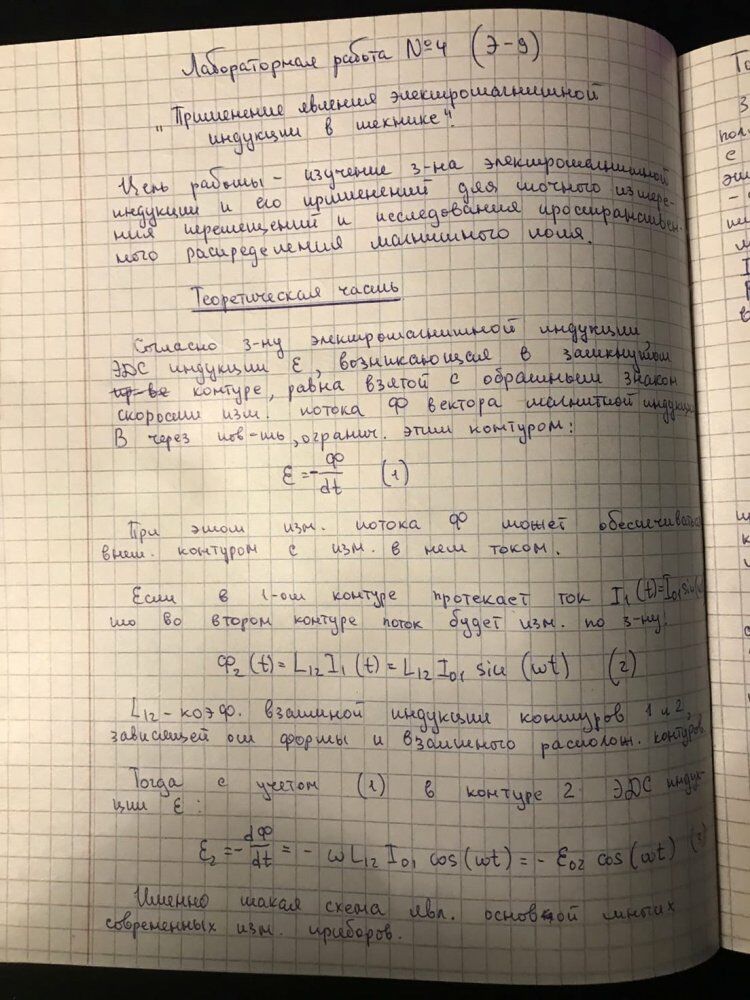 Лабораторная работа №4 (Э-9)
"Применение явления электромагнитной
индукции в технике".
Цель работы - изучение з-на электромагнитной
индукции и его применений для точного измере-
ния перемещений и исследования пространствен-
ного распределения магнитного поля.
Теоретическая часть
Согласно з-ну электромагнитной индукции,
ЭДС индукции ε, возникающая в замкнутом
контуре, равна взятой с обратным знаком
скорости изм. потока Ф вектора магнитной индукции
B через пов-ть, огранич. этим контуром:
ε = - Ф/dt (1)
При этом изм. потока Ф может обеспечиваться
внеш. контуром с изм. в нем током.
Если в 1-ом контуре протекает ток I₁(t)=I₀₁sin(
то во втором контуре поток будет изм. по з-ну:
Ф₂(t) = L₁₂I₁(t) = L₁₂I₀₁ sin (ωt) (2)
L₁₂ - коэф. взаимной индукции контуров 1 и 2,
зависящей от формы и взаимного располож. контуров.
Тогда с учетом (1) в контуре 2 ЭДС индук-
ции ε:
ε₂ = - dФ/dt = - ωL₁₂ I₀₁ cos(ωt) = - ε₀₂ cos(ωt) (3)
Именно такая схема явл. основой многих
современных изм. приборов.